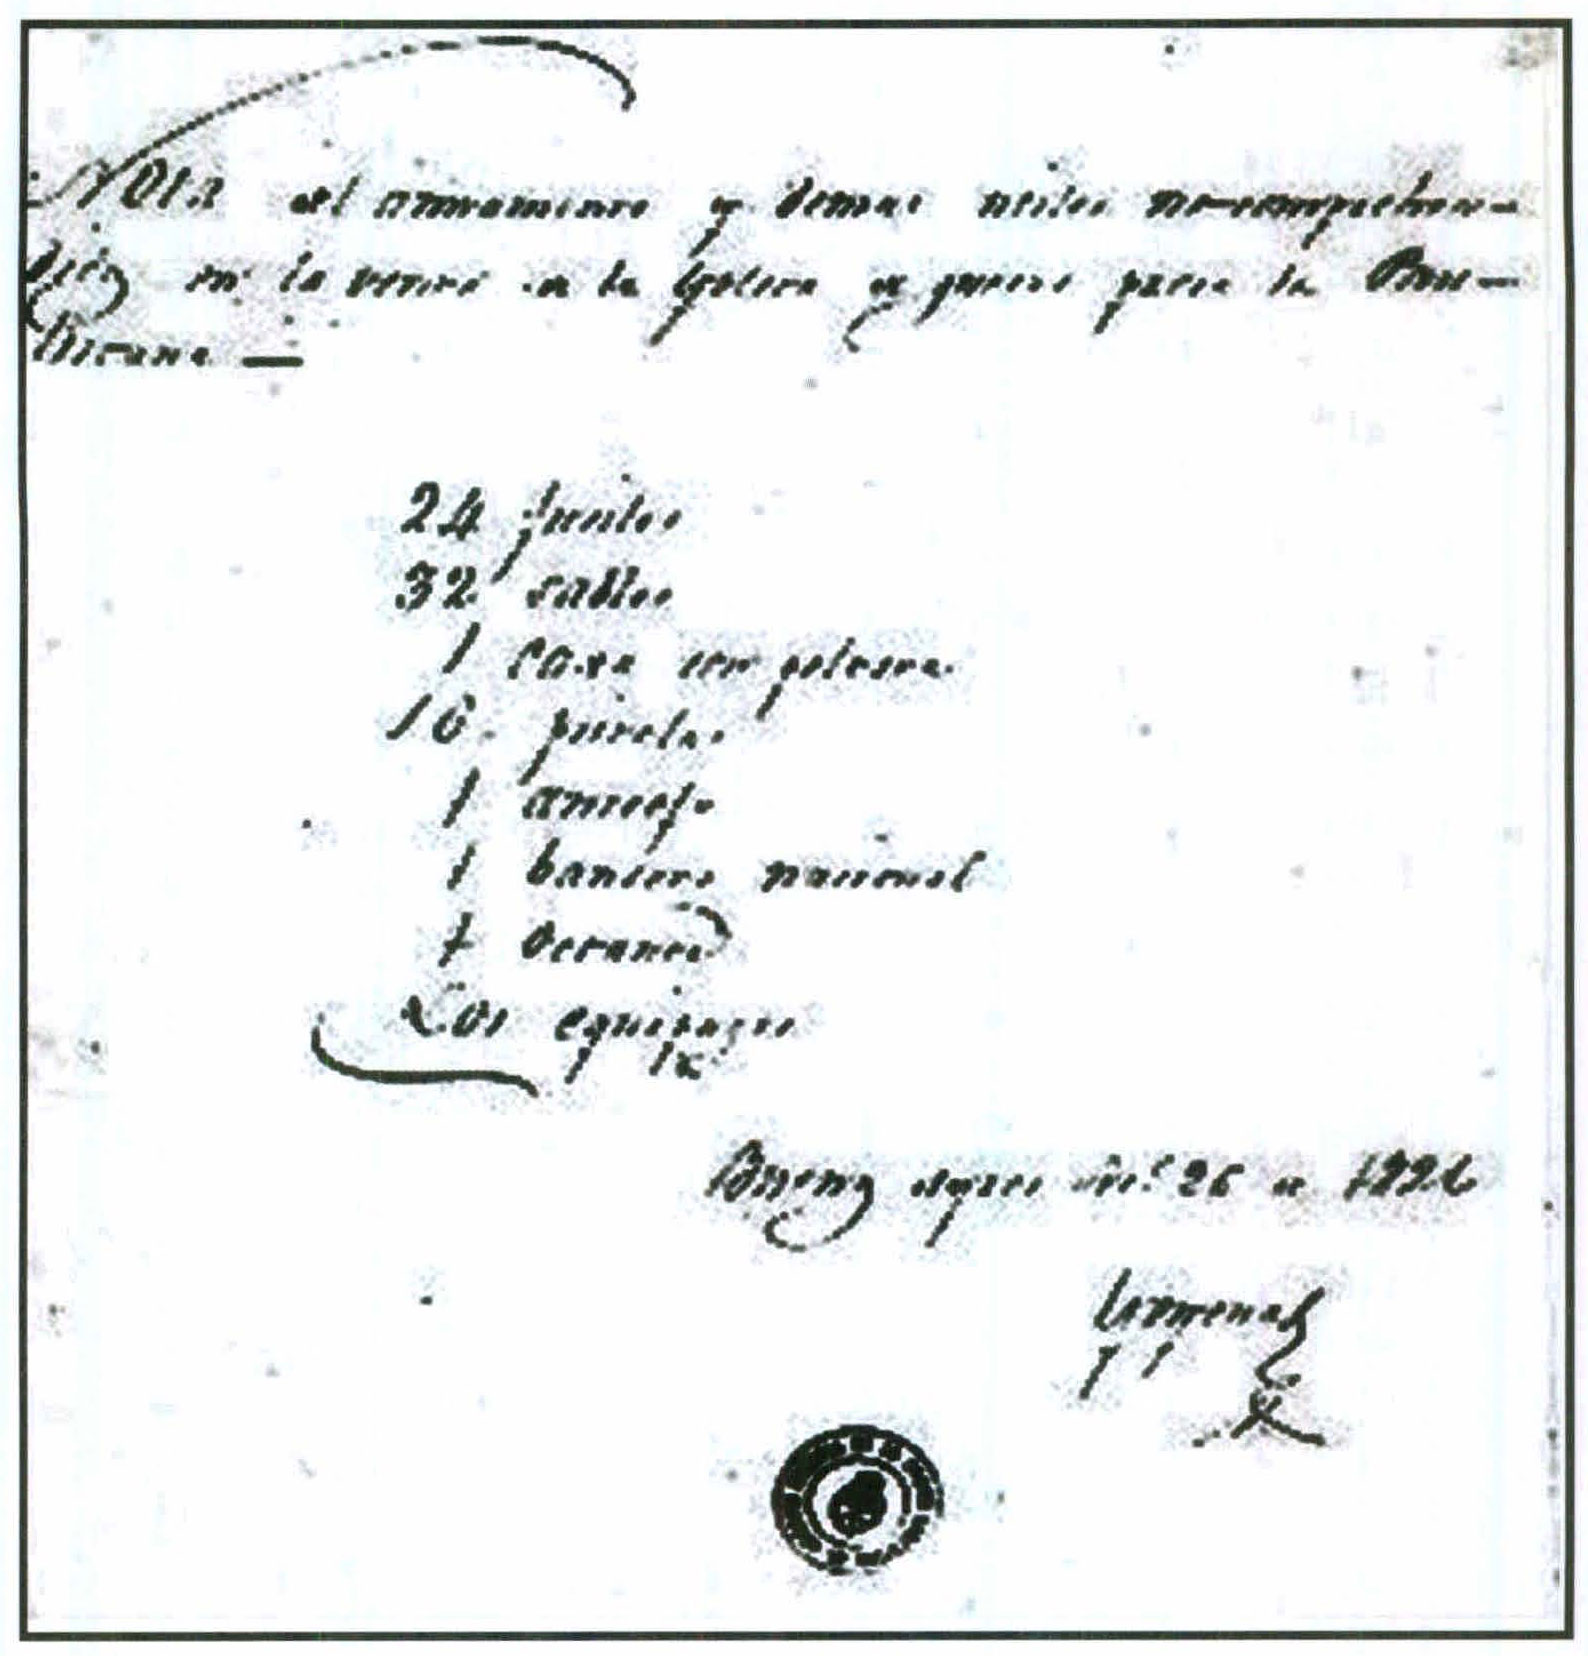 Nota del armamento y demas utiles no compehen-
didos en la venta de la Goleta de guerra para la Ban-
dicana —
24 fusiles
32 sables
1 caxa con polvora
16 pistolas
1 anteojo
1 bandera nacional
1
Los equipages
Buenos Ayres 26 de